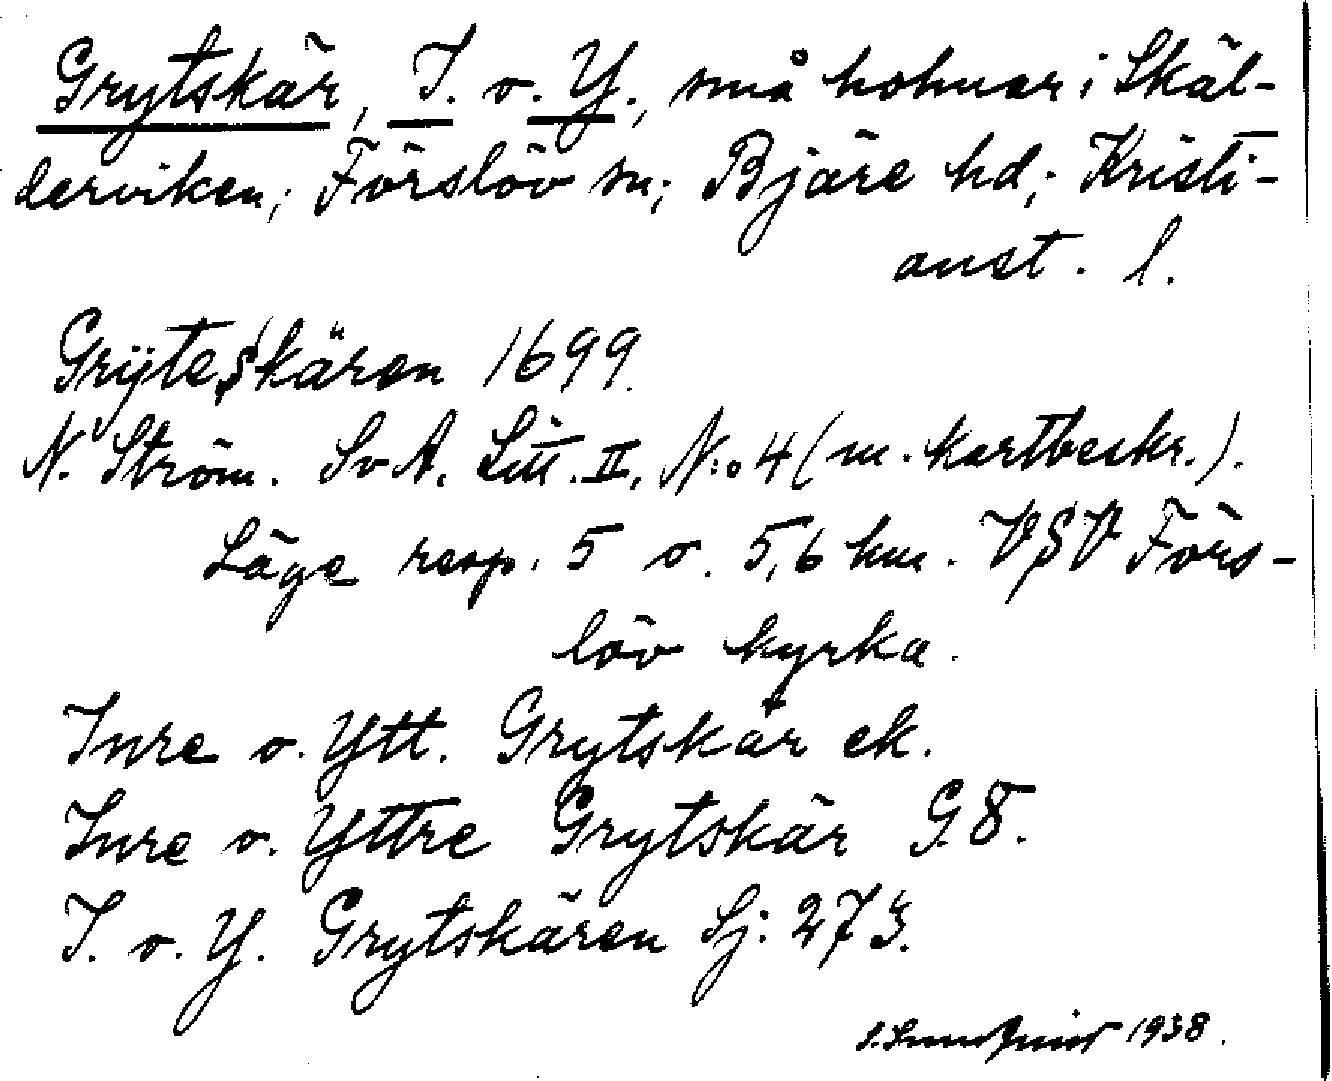 Grytskär, I. o. Y., små holmar i Skäl-
derviken; Förslöv sn; Bjäre hd; Kristi-
anst. l.
Grÿteskären 1699.
N. Ström. SvA. Litt. II. N:o 4 (m. kartbeskr.).
Läge resp. 5 o. 5,6 km. VSV Förs-
löv kyrka.
Inre o. Ytt. Grytskär ek.
Inre o. Yttre Grytskär G.8.
I. o. Y. Grytskären Sj: 273.
1938.